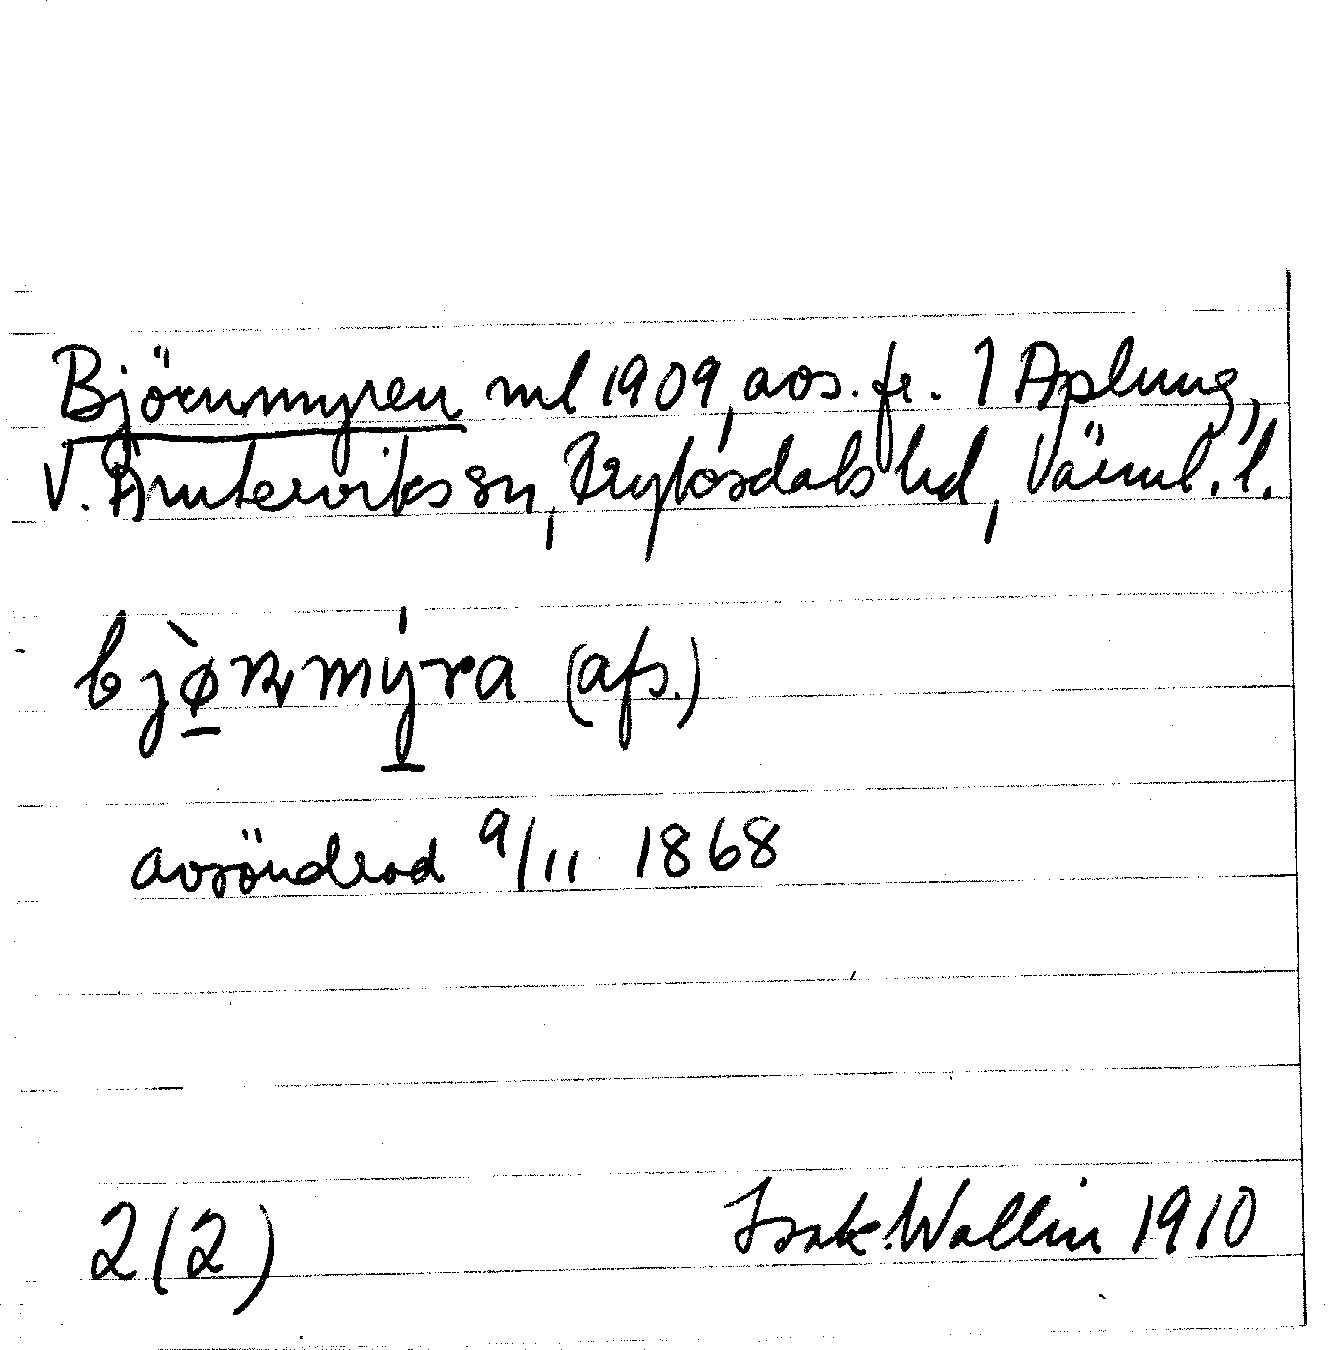 Björnmyren ml 1909, avs. fr. 1 Aplung,
V. Ämterviks sn, Fryksdals hd, Värml. l.
bjø̱̀rnmý̱ra (afs.)
avsöndrad 9/11 1868
2(2) Isak Wallin 1910